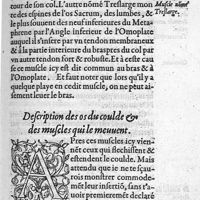 tour de son col. L'autre nõmé Treslarge mon
te des espines de l'os Sacrum, des lumbes, &
les neuf inferieures ou enuiron du Meta-
phrene par l'Angle inferieur de l'Omoplate
auquel il s'insere par vn tendon membraneux
& à la partie interieure du brasiers du col par
vn autre tendon fort & robuste. & est ce cas en
ce muscle icy est dit commun au bras & à
l'Omoplate. Et faut noter que lors qu'il y a
quelque playe en cedit muscle, on ne peut ai-
ement leuer le bras.
Muscle
Treslarge.
Description des os du coulde &
des muscles qui le meuuent.
APres ces muscles icy vien-
nent ceux qui flechissent &
estendent le coulde. Mais
attendu que ie ne te sçau-
rois monstrer commode-
ment leur insertiõ, sans t'a-
uoir premierement declaré